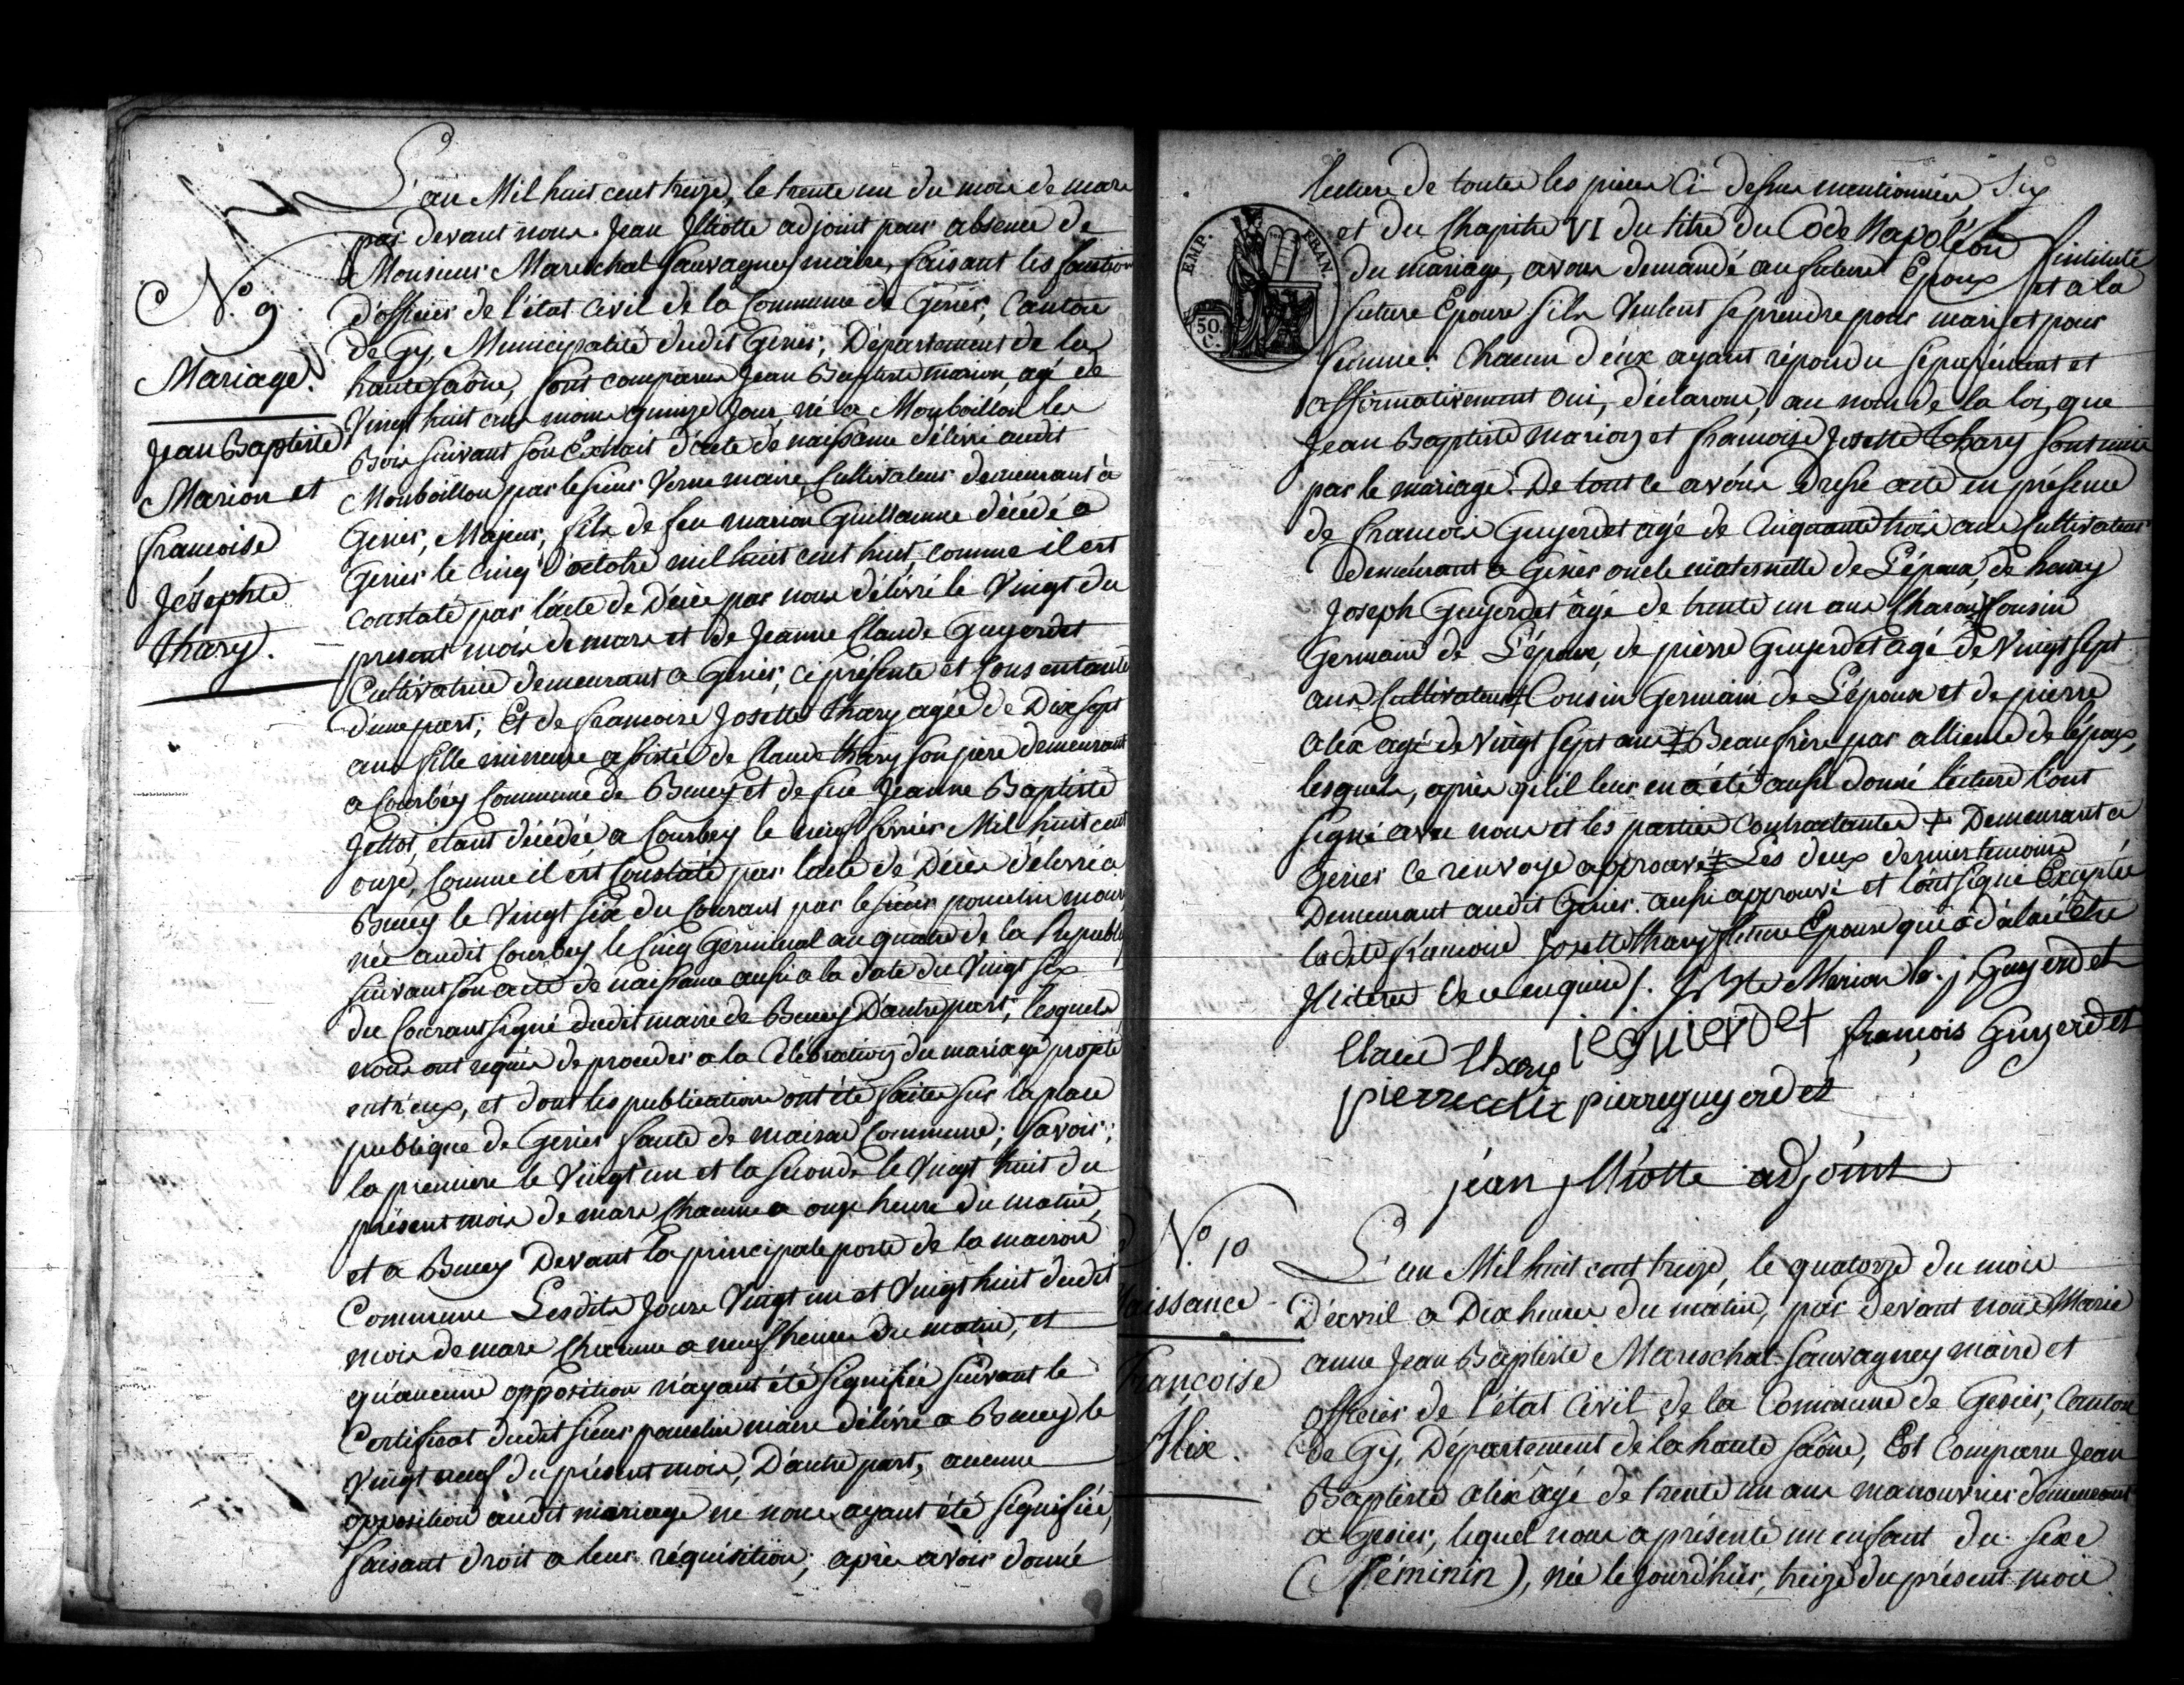 L'an Mil huit cent treize, le trente un du mois de mars
par devant nous Jean Miotte adjoint pour absence de
Monsieur Mareschal Sauvagney maire, faisant les fonction
d'officier de l'état Civil de la Commune de Gesier, Canton
de Gy, Municipalité dudit Gesier, Département de la
haute Saône, sont comparus Jean Baptiste marion, agé de
Vingt huit ans moins quinze Jour né a Monboillon les
Bois suivant son Extrait d'acte de naissance délivré audit
Monboillon par le sieur Verne maire, Cultivateur demeurant à
Gesier, Majeur, fils de feu marion Guillaume décédé a
Gesier le cinq d'octobre mil huit cent huit, comme il est
constaté par l'acte de Décès par nous délivré le Vingt du
present mois de mars et de Jeanne Claude Guyerdet
Cultivatrice demeurant a Gesier, ci présente et Consentante
d'une part; Et de francoise Josette thary agée de Dix sept
ans fille mineure assistée de Claude thary son père demeurant
a Courbey Commune de Bucey et de fue Jeanne Baptiste
Jettot, étant décédée a Courbey le neuf fevrier Mil huit cent
onze, Comme il est Constaté par l'acte de Décès délivré a
Bucey le Vingt six du Courant par le sieur poucelin maire
née audit Courbey le Cinq Germinal an quatre de la Republi
suivant son acte de naissance aussi a la date du Vingt six
du Courant signé dudit maire de Bucey D'autre part; lesquels
nous ont requis de proceder a la Célébration du mariage projeté
entr'eux, et dont les publication ont été faites sur la place
publique de Gesier faute de maison Commune; Savoir;
la première le Vingt un et la seconde le Vingt huit du
présent mois de mars Chacune a onze heure du matin,
et a Bucey Devant la principale porte de la maison
Commune Lesdits Jours Vingt un et Vingt huit dudit
mois de mars Chacune a neuf heures du matin, et
qu'aucune opposition n'ayant été signifiée suivant le
Certificat dudit sieur poucelin maire délivré a Bucey le
Vingt neuf du présent mois, D'autre part, aucune
opposition audit mariage ne nous ayant été signifiée,
faisant droit a leur réquisition; après avoir donné
N.° 9
Mariage.
Jean Baptiste
Marion et
francoise
Jósephte
thary.
lecture de toutes les pieces Ci-dessus mentionnées,
et du Chapitre VI du titre du Code Napoléon intitulé
du mariage, avons demandé au futur Epoux et a la
future Epouse s'ils Veulent se prendre pour mari et pour
femme: Chacun d'eux ayant répondu séparément et
affirmativement oui, déclarons, au nom de la loi, que
Jean Baptiste Marion et francoise Josette thary sont unis
par le mariage. De tout ce avons Dressé acte en présence
de francois Guyerdet agé de Cinquante trois ans Cultivateur
Demeurant a Gesier oncle maternelle de L'époux, de
Joseph Guyerdet âgé de trente un ans Cousin
Germain de L'époux, de pierre Guyerdet agé de Vingt sept
ans Cultivateur Cousin Germain de L'époux et de pierre
alix agé de Vingt sept ans ‡ Beaufrère par alliance de l'époux,
lesquels, après qu'il leur en a été aussi donné lecture l'ont
signé avec nous et les parties Contractantes + Demeurant a
Gesier ce renvoye approuvé ‡ Les deux dernier temoins
Demeurant audit Gesier. aussi approuvé et l'ont signé Exceptée
ladite francoise Josette thary future Epouse qui a déclaré être
Jliterée de ce enquise /. J Bte Marion j Guyerdet
Claude thary jeguierdet françois Guyerdet
pierre alix pierre guyerdet
jean Miotte adjoint
N.° 10
Naissance
Françoise
Alix.
L'an Mil huit cent treize, le quatorze du mois
D'avril a Dix heures du matin, par devant nous Marie
anne Jean Baptiste Mareschal-Sauvagney maire et
officier de l'état Civil de la Commune de Gesier, Canton
de Gy, Département de la haute Saône, Est Comparu Jean
Baptiste alix âgé de trente un ans manouvrier demeurant
a Gesier, lequel nous a présenté un enfant du sexe
(Féminin), née le Jour d'hier, treize du présent mois
EMP. FRAN.
50. C.